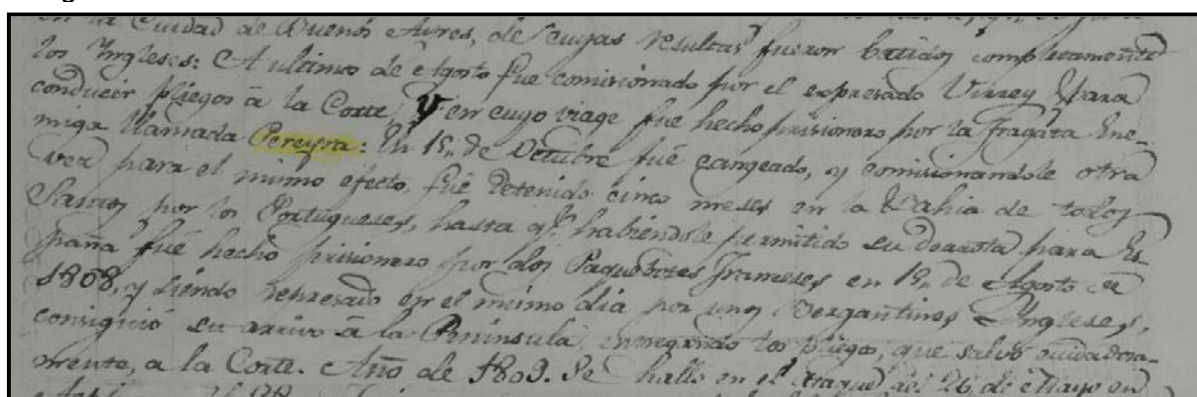 en la Ciudad de Buenos Ayres, de cuyas resultas fueron batidos completamente
los Yngleses: A ultimos de Agosto fue comisionado por el expresado Virrey para
conducir pliegos â la Corte, y en cuyo viage fue hecho prisionero por la Fragata Ene-
miga llamada Pereyra: En 15,, de Octubre fué cangeado, y comisionandole otra
vez para el mismo efecto, fué detenido cinco meses en la Bahia de todos
Santos por los Portugueses, hasta qe. habiendole permitido su derrota para Es
paña fué hecho prisionero por dos Paquebotes Franceses en 15,, de Agosto de
1808, y siendo represado en el mismo dia por unos Bergantines Yngleses,
consiguió su arrivo â la Peninsula, entregando los pliegos, que salvó cuidadosa-
mente, a la Corte. Año de 1809. Se halló en el ataque del 26 de Mayo en